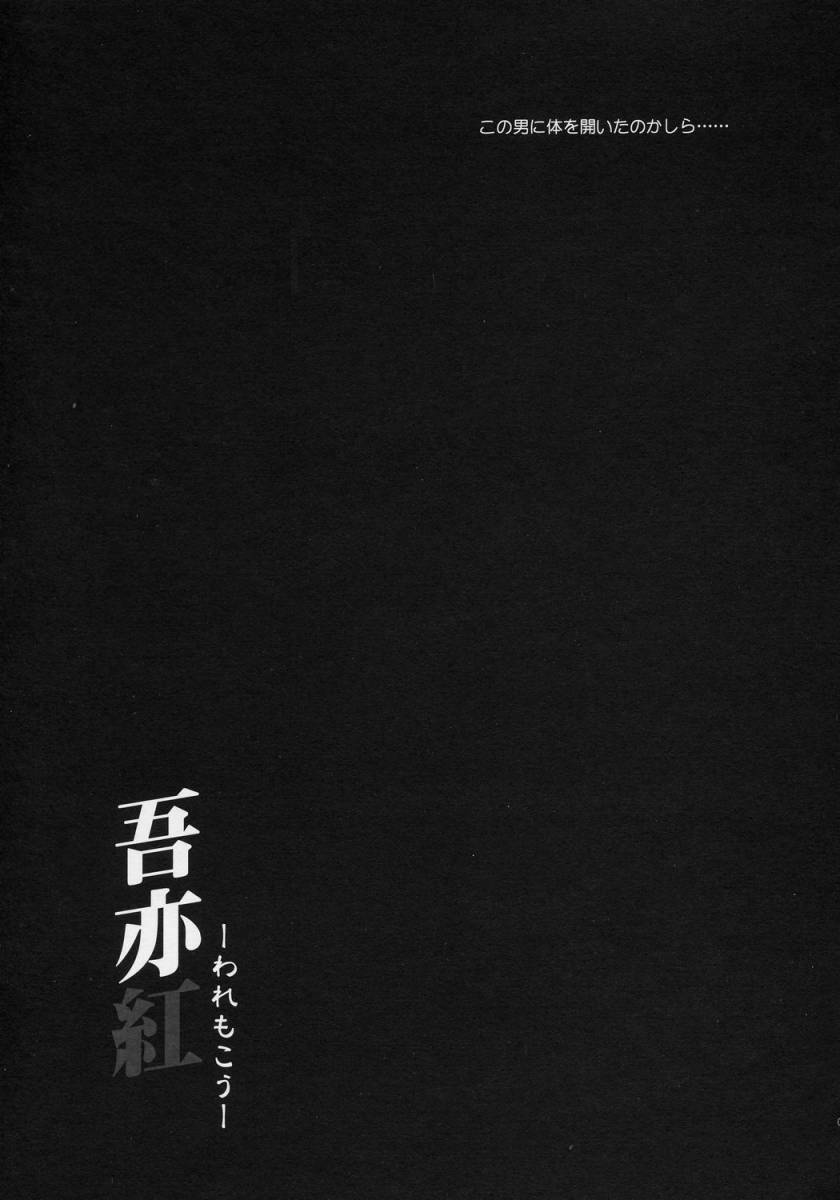 この男に体を開いたのかしら……
吾亦紅
ーわれもこうー